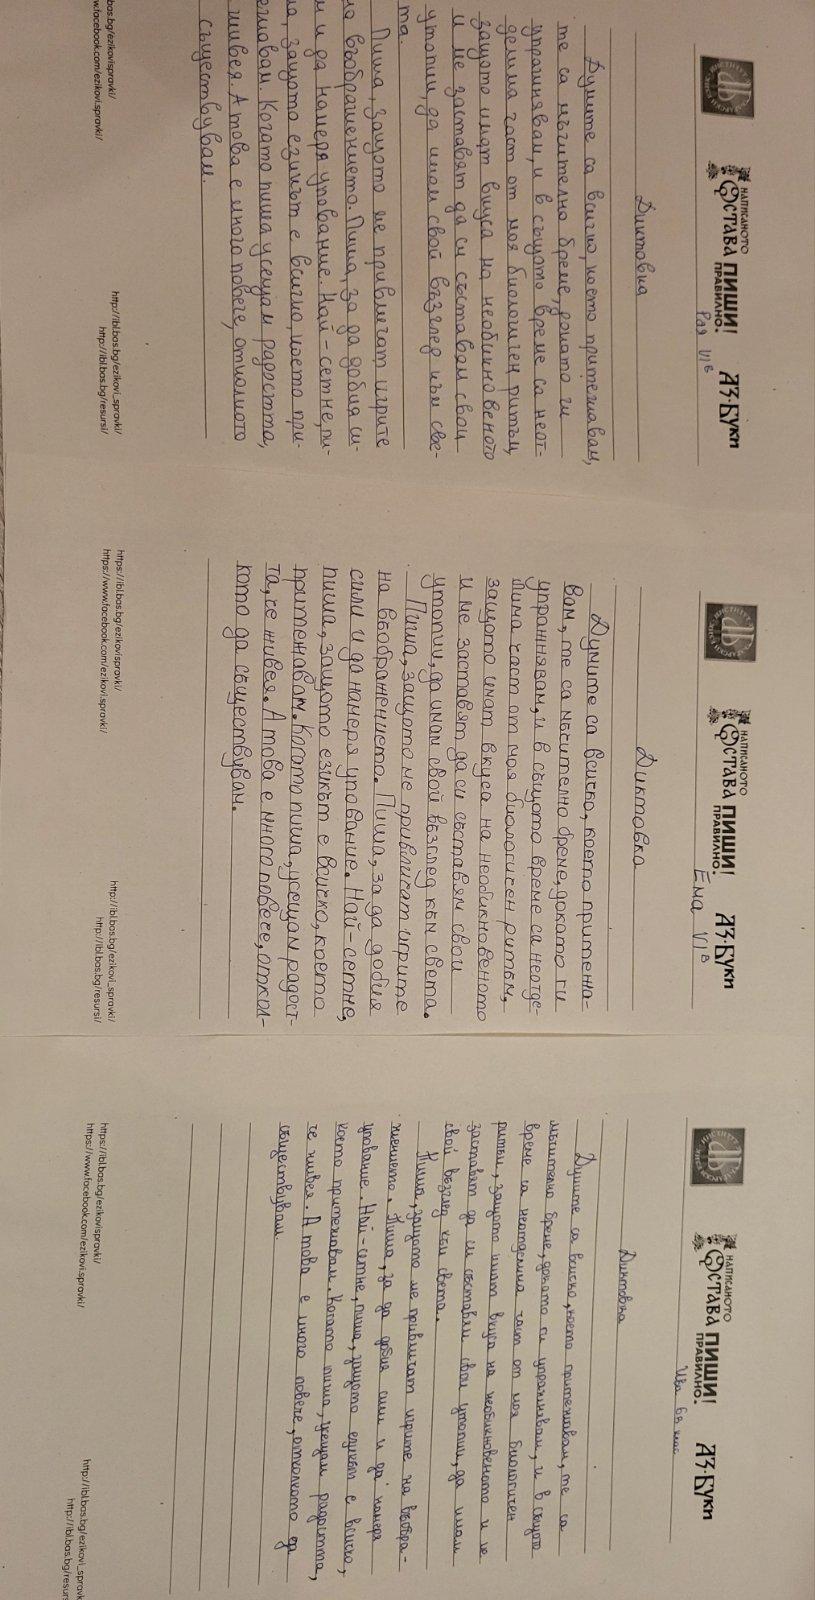 НАПИСАНОТО
ОСТАВА ПИШИ!
ПРАВИЛНО!
АЗ·БУКИ
Рая VI в
Диктовка
Думите са всичко, което притежавам,
те са мъчително бреме, докато ги
упражнявам, и в същото време са неот-
делима част от моя биологичен ритъм,
защото имат вкуса на необикновеното
и ме заставят да си съставям свои
утопии, да имам свой възглед към све-
та.
Пиша, защото ме привличат игрите
въображението. Пиша, за да добия си-
и да намеря упование. Най-сетне, пи-
защото езикът е всичко, което при-
Когато пиша усещам радостта,
живея. А това е много повече, отколкото
съществувам.
bas.bg/ezikovispravki/
facebook.com/ezikovi.spravki/
http://ibl.bas.bg/ezikovi_spravki/
http://ibl.bas.bg/resursi/
НАПИСАНОТО
ОСТАВА ПИШИ!
ПРАВИЛНО!
АЗ·БУКИ
Ема VI в
Диктовка
Думите са всичко, което притежа-
вам, те са мъчително бреме, докато ги
упражнявам, и в същото време са неотде-
лима част от моя биологичен ритъм,
защото имат вкуса на необикновеното
и ме заставят да си съставям свои
утопии, да имам свой възглед към света.
Пиша, защото ме привличат игрите
на въображението. Пиша, за да добия
сили и да намеря упование. Най-сетне,
пиша, защото езикът е всичко, което
притежавам. Когато пиша, усещам радост-
та, че живея. А това е много повече, откол-
кото да съществувам.
https://ibl.bas.bg/ezikovispravki/
https://www.facebook.com/ezikovi.spravki/
http://ibl.bas.bg/ezikovi_spravki/
http://ibl.bas.bg/resursi/
НАПИСАНОТО
ОСТАВА ПИШИ!
ПРАВИЛНО!
АЗ·БУКИ
Ива 6в клас
Диктовка
Думите са всичко, което притежавам, те са
мъчително бреме, докато ги упражнявам, и в същото
време са неотделима част от моя биологичен
ритъм, защото имат вкуса на необикновеното и ме
заставят да си съставям свои утопии, да имам
свой възглед към света.
Пиша, защото ме привличат игрите на въобра-
жението. Пиша, за да добия сили и да намеря
упование. Най-сетне, пиша, защото езикът е всичко,
което притежавам. Когато пиша, усещам радостта,
че живея. А това е много повече, отколкото да
съществувам.
https://ibl.bas.bg/ezikovispravki/
https://www.facebook.com/ezikovi.spravki/
http://ibl.bas.bg/ezikovi_spravk
http://ibl.bas.bg/resurs